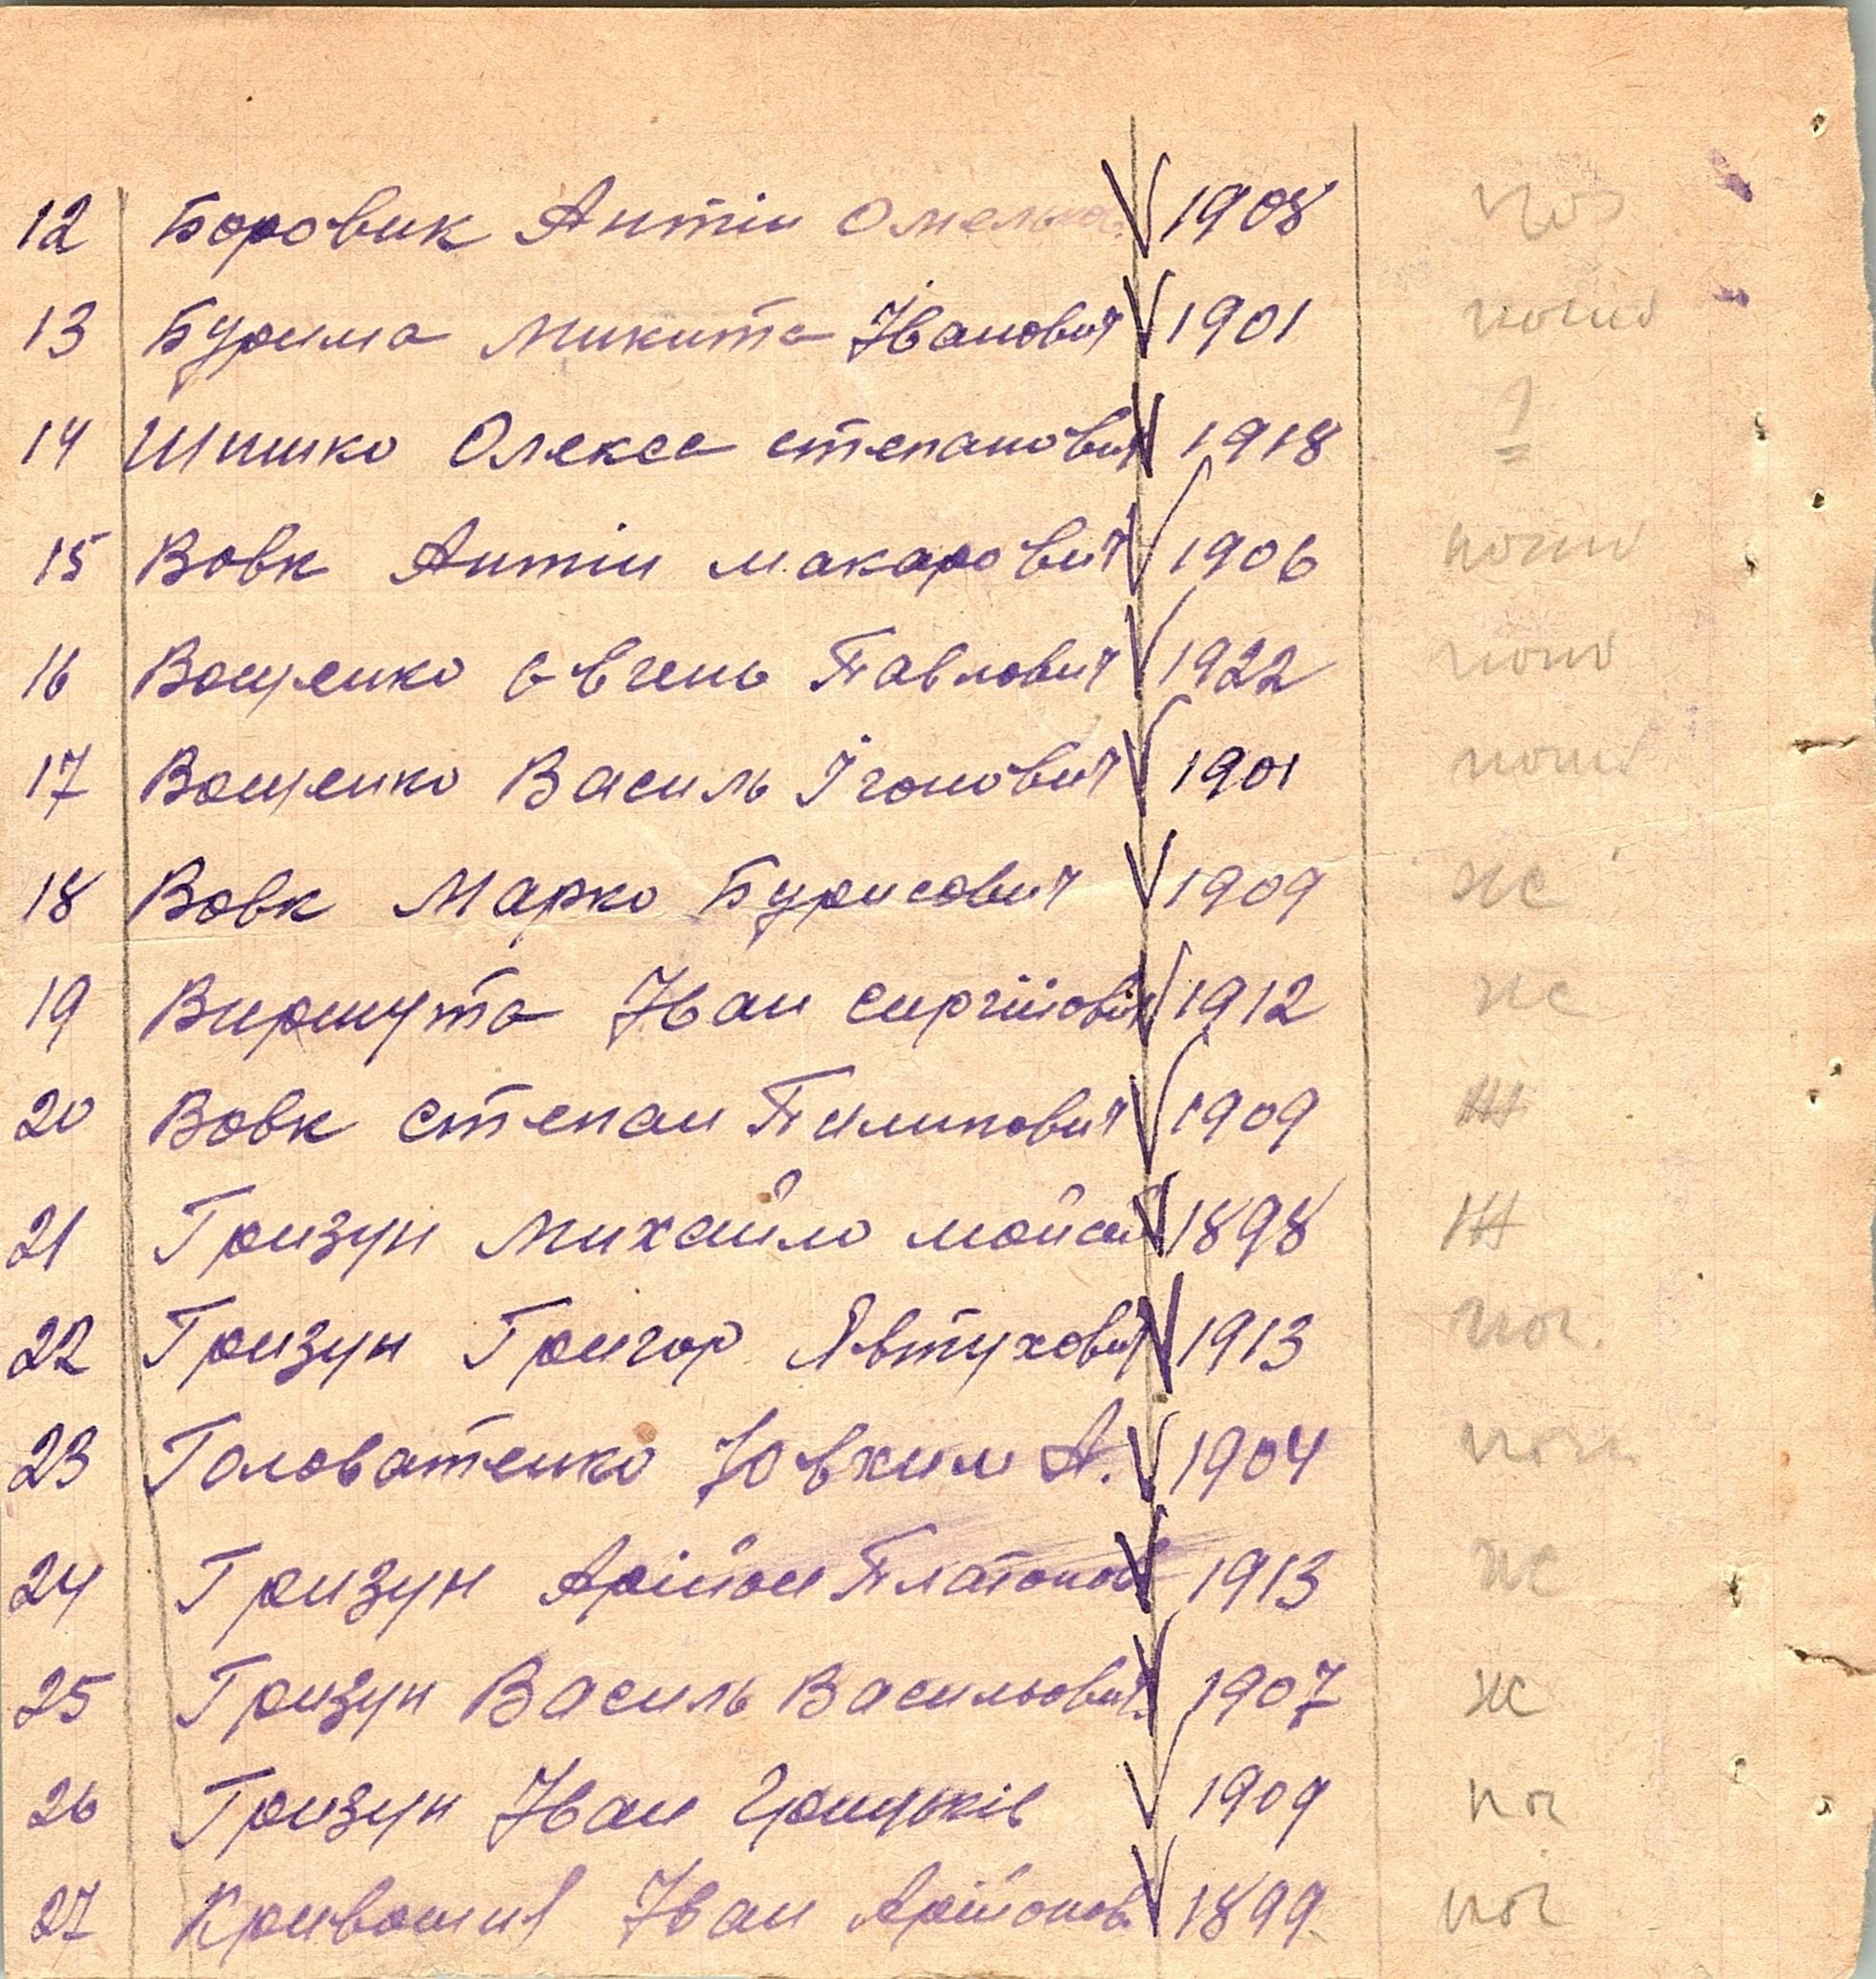 12 Боровик Антін Омельков. V 1908
13 Бурима Микита Іванович V 1901
14 Шишко Олекса степанович V 1918 ?
15 Вовк Антін макарович V 1906
16 Вощенко Євгень Павлович V 1922
17 Вощенко Василь Ігонович V 1901
18 Вовк Марко Бурисович V 1909 ж
19 Виршута Іван сиргійович V 1912 ж
20 Вовк степан Пилипович V 1909
21 Гризун Михайло мойсей V 1898
22 Гризун Григор Явтухович V 1913 пог.
23 Головатенко Ювхим А. V 1904
24 Гризун Арійон Платонов V 1913 ж
25 Гризун Василь Васильович V 1907 ж
26 Гризун Іван Грицьків V 1909 пог
27 Кривошия Іван Арійонов V 1899 пог